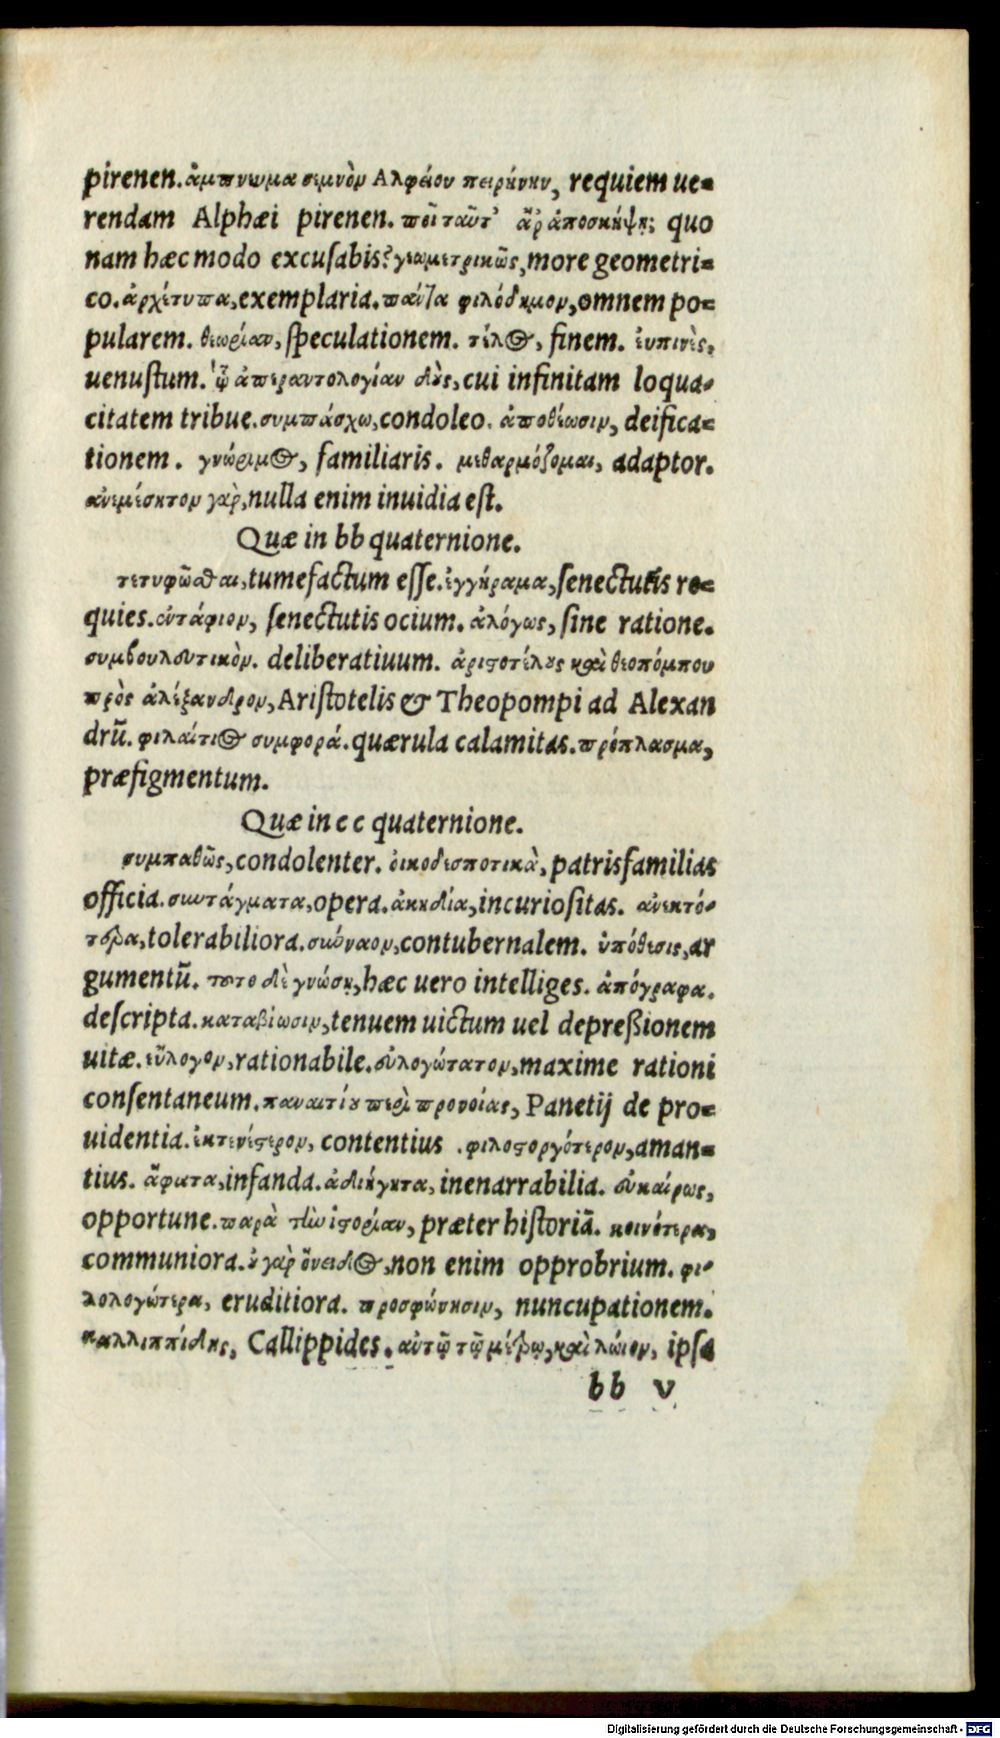 pirenen. ἄμπνωμα σεμνὸν Αλφείου πειρήνην, requiem ue-
rendam Alphæi pirenen. ποῖ ταῦτ' ἄρ ἀποσκήψῃ; quo
nam hæc modo excusabis? γεωμετρικῶς, more geometri-
co. ἀρχέτυπα, exemplaria. πάντα φιλόδημον, omnem po-
pularem. θεωρίαν, speculationem. τέλος, finem. ἐυπινὲς,
uenustum. ᾧ ἀπεραντολογίαν δὸς, cui infinitam loqua-
citatem tribue. συμπάσχω, condoleo. ἀποθέωσιν, deifica-
tionem. γνώριμος, familiaris. μεθαρμόζομαι, adaptor.
ἀνεμέσητον γὰρ, nulla enim inuidia est.
Quæ in bb quaternione.
τετυφῶσθαι, tumefactum esse. ἐγγήραμα, senectutis re-
quies. ἐντάφιον, senectutis ocium. ἀλόγως, sine ratione.
συμβουλευτικὸν. deliberatiuum. ἀριστοτέλους καὶ θεοπόμπου
πρὸς ἀλέξανδρον, Aristotelis & Theopompi ad Alexan
drū. φιλαίτιος συμφορά. quærula calamitas. πρόπλασμα,
præfigmentum.
Quæ in cc quaternione.
συμπαθῶς, condolenter. ὀικοδεσποτικὰ, patrisfamilias
officia. συντάγματα, opera. ἀκηδία, incuriositas. ἀνεκτό-
τερα, tolerabiliora. σύνναον, contubernalem. ὑπόθεσις, ar
gumentū. τοῦτο δὲ γνώσῃ, hæc uero intelliges. ἀπόγραφα.
descripta. καταβίωσιν, tenuem uictum uel depreßionem
uitæ. εὔλογον, rationabile. εὐλογώτατον, maxime rationi
consentaneum. παναιτίου περὶ προνοίας, Panetij de pro-
uidentia. ἐκτενέστερον, contentius. φιλοστοργότερον, aman-
tius. ἄφατα, infanda. ἀδιήγητα, inenarrabilia. εὐκαίρως,
opportune. παρὰ τὴν ἱστορίαν, præter historiā. κοινότερα,
communiora. οὐ γὰρ ὄνειδος, non enim opprobrium. φι-
λολογώτερα, eruditiora. προσφώνησιν, nuncupationem.
καλλιππίδης, Callippides. αὐτῷ τῷ μέτρῳ, καὶ λώιον, ipsa
bb v
Digitalisierung gefördert durch die Deutsche Forschungsgemeinschaft - DFG